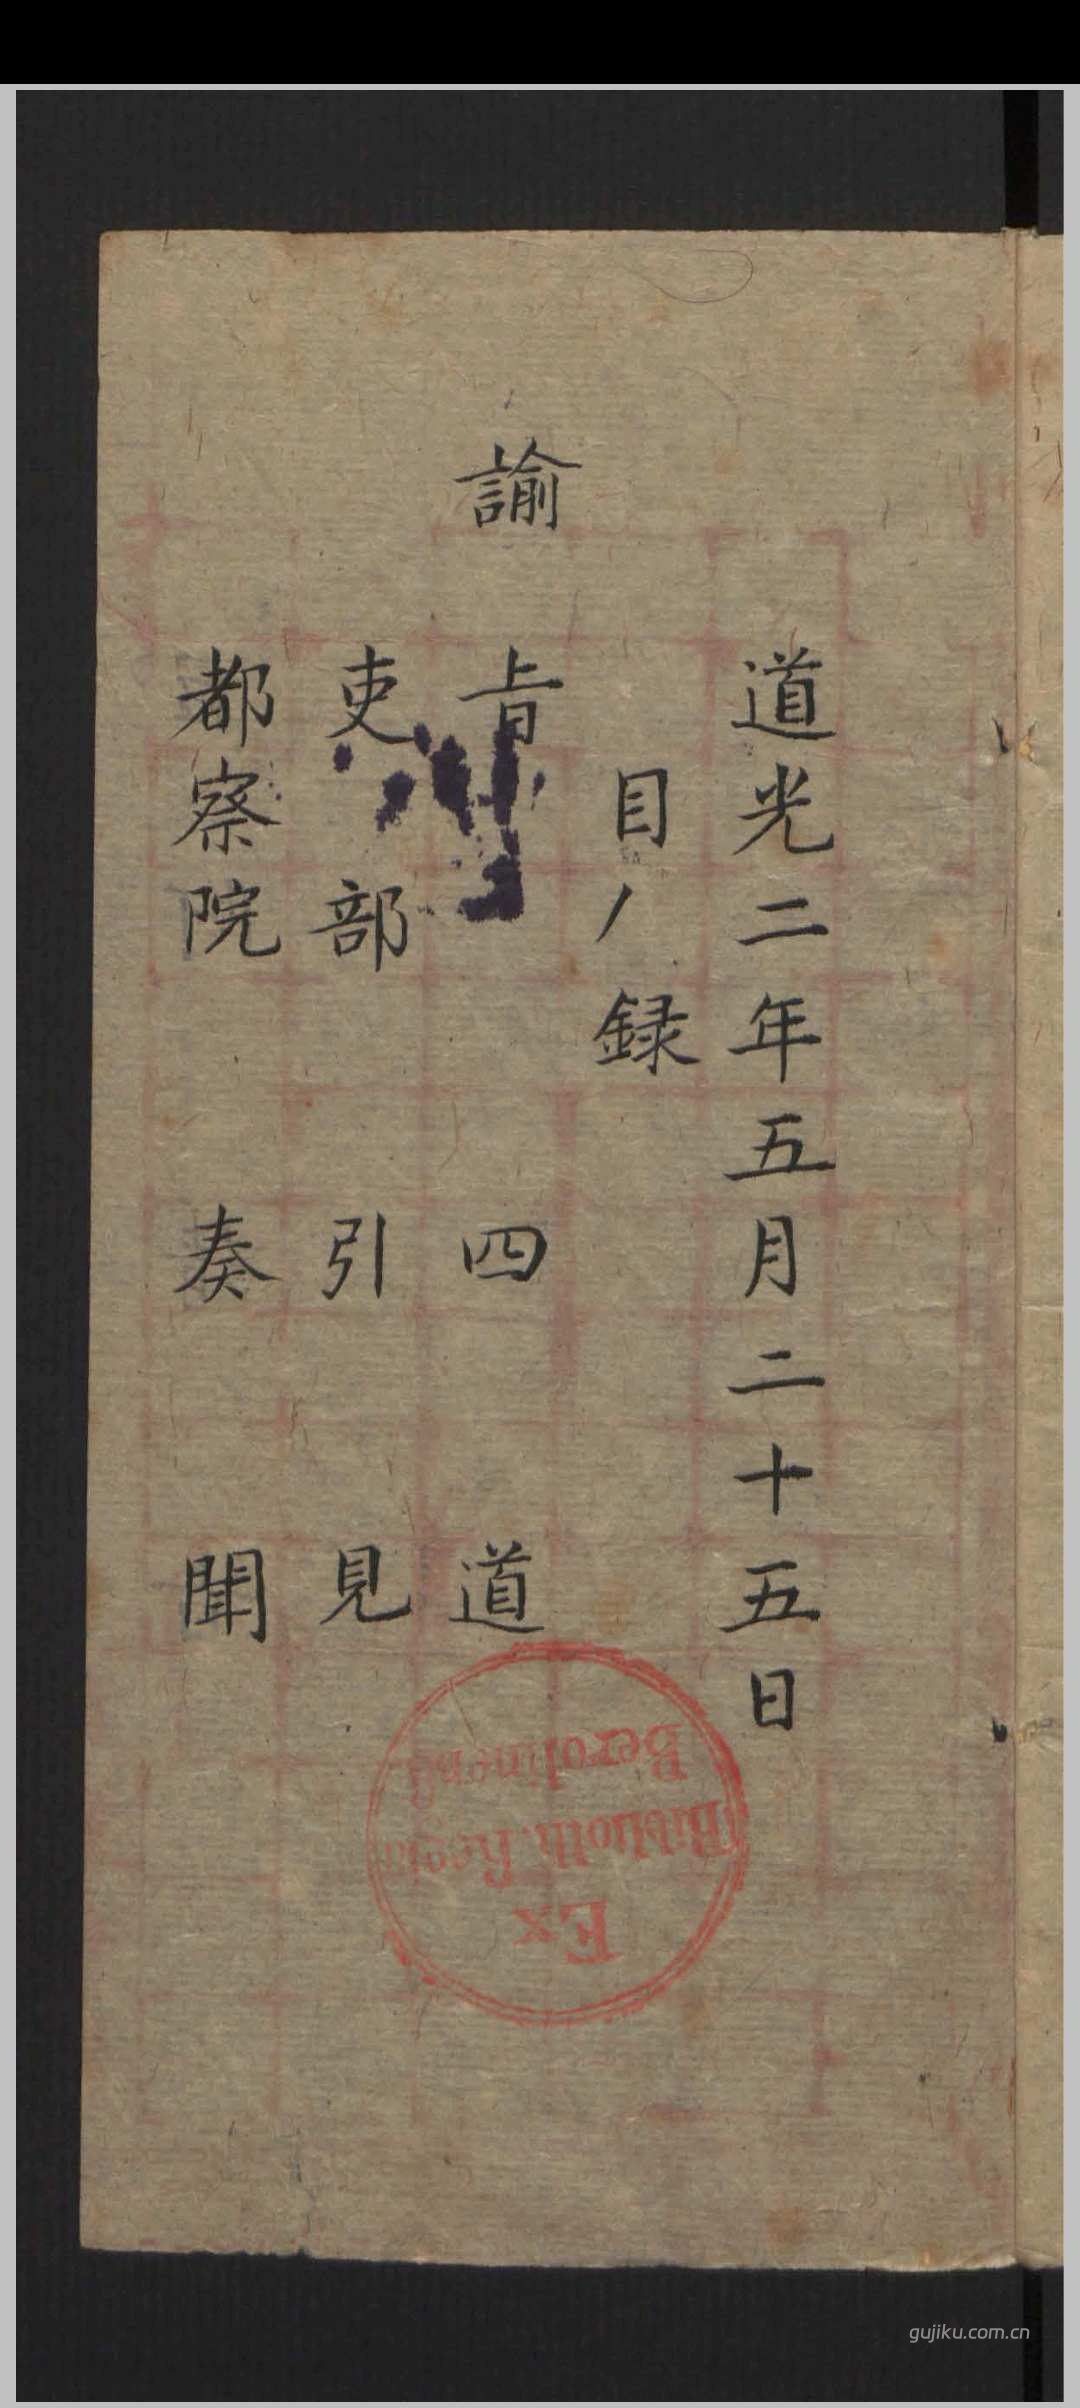 道光二年五月二十五日
目録
諭旨 四道
吏部 引見
都察院 奏聞
Ex
Biblioth. Regia
Berolinens.
gujiku.com.cn